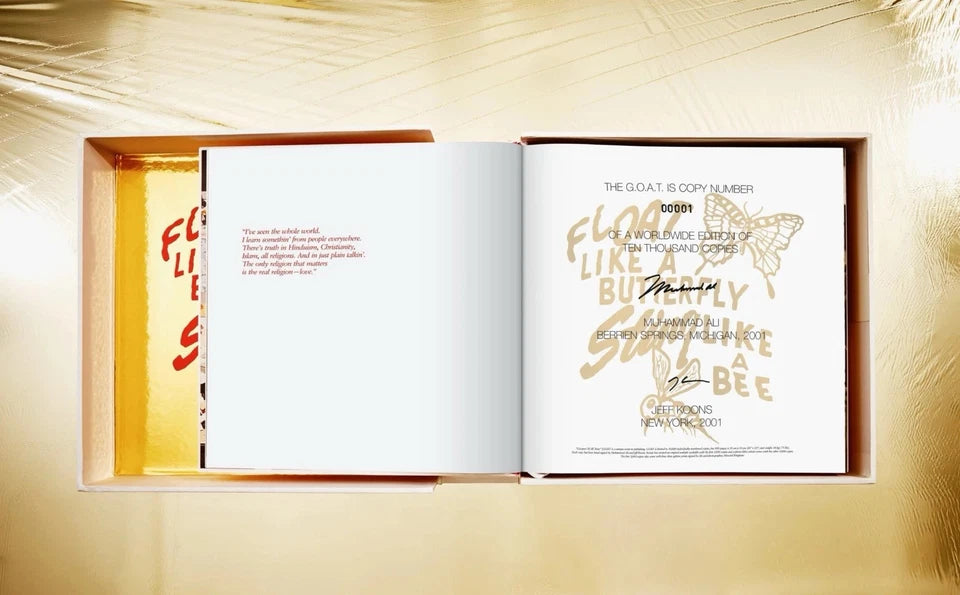 FL
LI
"I've seen the whole world.
I learn somethin' from people everywhere.
There's truth in Hinduism, Christianity,
Islam, all religions. And in just plain talkin'.
The only religion that matters
is the real religion – love."
THE G.O.A.T. IS COPY NUMBER
00001
OF A WORLDWIDE EDITION OF
TEN THOUSAND COPIES
FLOAT
LIKE A
BUTTERFLY
STING LIKE
A
BEE
Muhammad Ali
MUHAMMAD ALI
BERRIEN SPRINGS, MICHIGAN, 2001
JEFF KOONS
NEW YORK, 2001